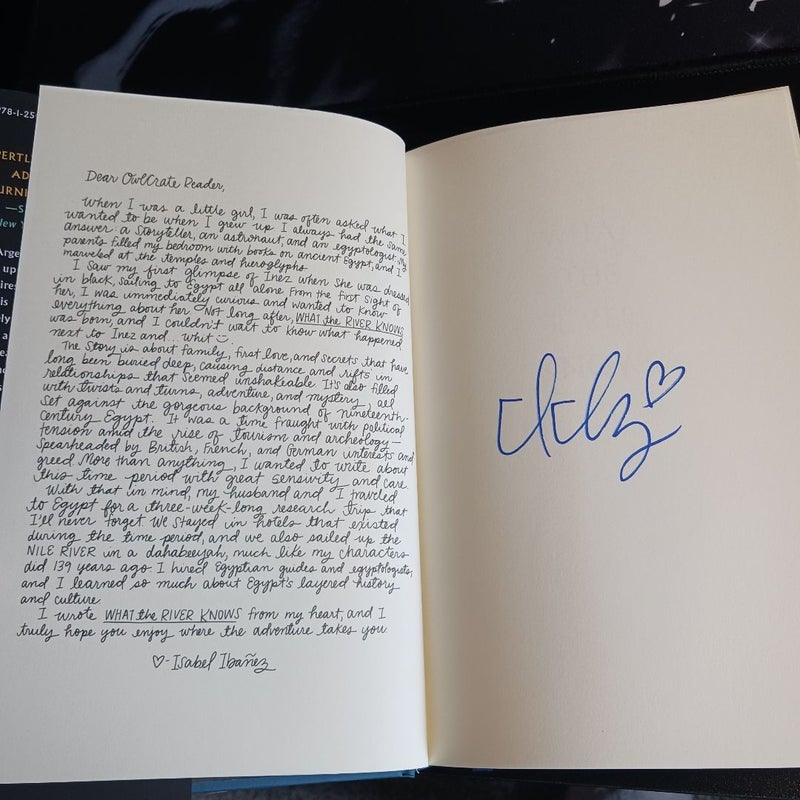 78-1-25
PERTL
AD
URNI
—S
New Y
Arge
up
ires
is
ely
a
ea
Dear OwlCrate Reader,
When I was a little girl, I was often asked what I
wanted to be when I grew up I always had the same
answer: a storyteller, an astronaut, and an egyptologist. My
parents filled my bedroom with books on ancient Egypt, and I
marveled at the temples and hieroglyphs
I saw my first glimpse of Inez when she was dressed
in black, sailing to Egypt all alone From the first sight of
her, I was immediately curious and wanted to know
everything about her. Not long after, WHAT the RIVER KNOWS
was born, and I couldn't wait to know what happened
next to Inez and... Whit
The story is about family, first love, and secrets that have
long been buried deep, causing distance and rifts in
relationships that seemed unshakeable. It's also filled
with twists and turns, adventure, and mystery, all
set against the gorgeous background of nineteenth-
century Egypt. It was a time fraught with political
tension amid the rise of tourism and archeology—
spearheaded by British, French, and German interests and
greed More than anything, I wanted to write about
this time period with great sensivity and care
With that in mind, my husband and I traveled
to Egypt for a three-week-long research trip that
I'll never forget. We stayed in hotels that existed
during the time period, and we also sailed up the
NILE RIVER in a dahabeeyah, much like my characters
did 139 years ago. I hired Egyptian guides and egyptologists,
and I learned so much about Egypt's layered history
and culture
I wrote WHAT the RIVER KNOWS from my heart, and I
truly hope you enjoy where the adventure takes you
♡-Isabel Ibañez